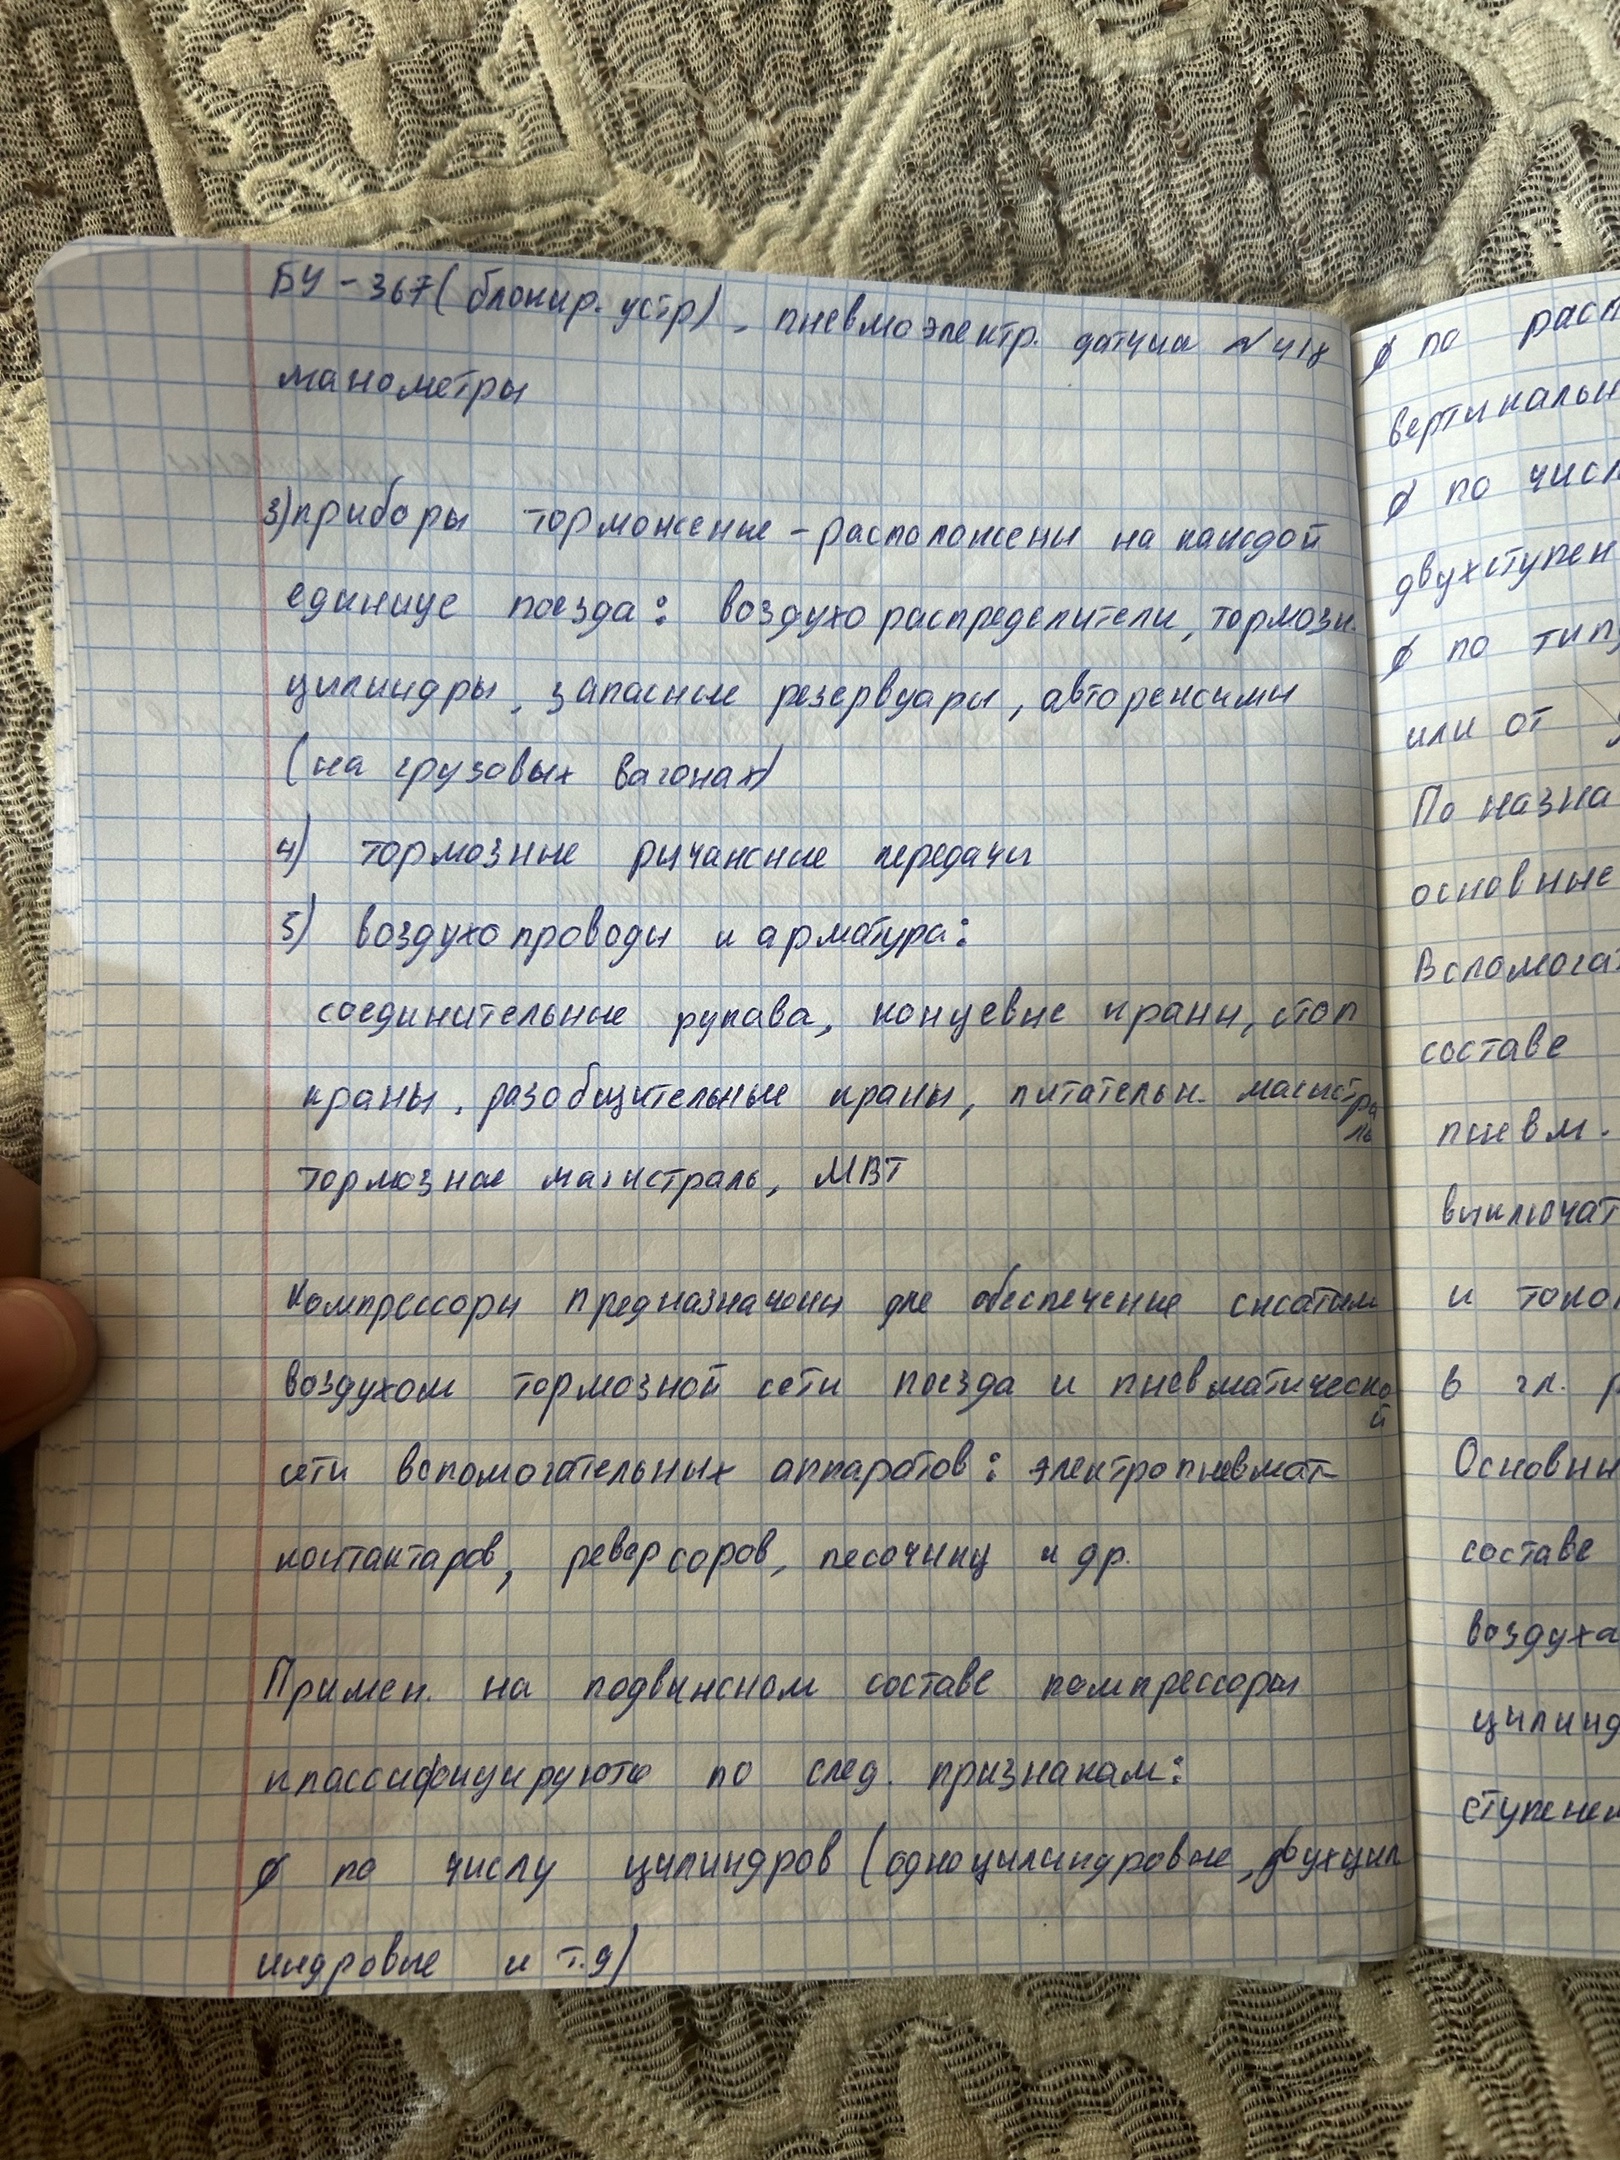 БУ-367 (блокир. устр), пневмоэлектр. датчик №418
манометры
3) приборы торможение - расположены на каждой
единице поезда: воздухораспределители, тормозн.
цилиндры, запасные резервуары, авторежимы
(на грузовых вагонах)
4) тормозные рычажные передачи
5) воздухопроводы и арматура:
соединительные рукава, концевые краны, стоп
краны, разобщительные краны, питательн. магистраль
тормозная магистраль, МВТ
Компрессоры предназначены для обеспечение сжатым
воздухом тормозной сети поезда и пневматической
сети вспомогательных аппаратов: электропневмат
контактаров, реверсоров, песочниц и др.
Примен. на подвижном составе компрессоры
классифицируются по след. признакам:
∅ по числу цилиндров (одноцилиндровые, двухцил
индровые и т.д)
∅ по расп
вертикальн
∅ по числ
двухступен
∅ по типу
или от
По назна
основные
Вспомогат
составе
пневм.
выключат
и токоп
в гл. р
Основны
составе
воздуха
цилинд
ступенем